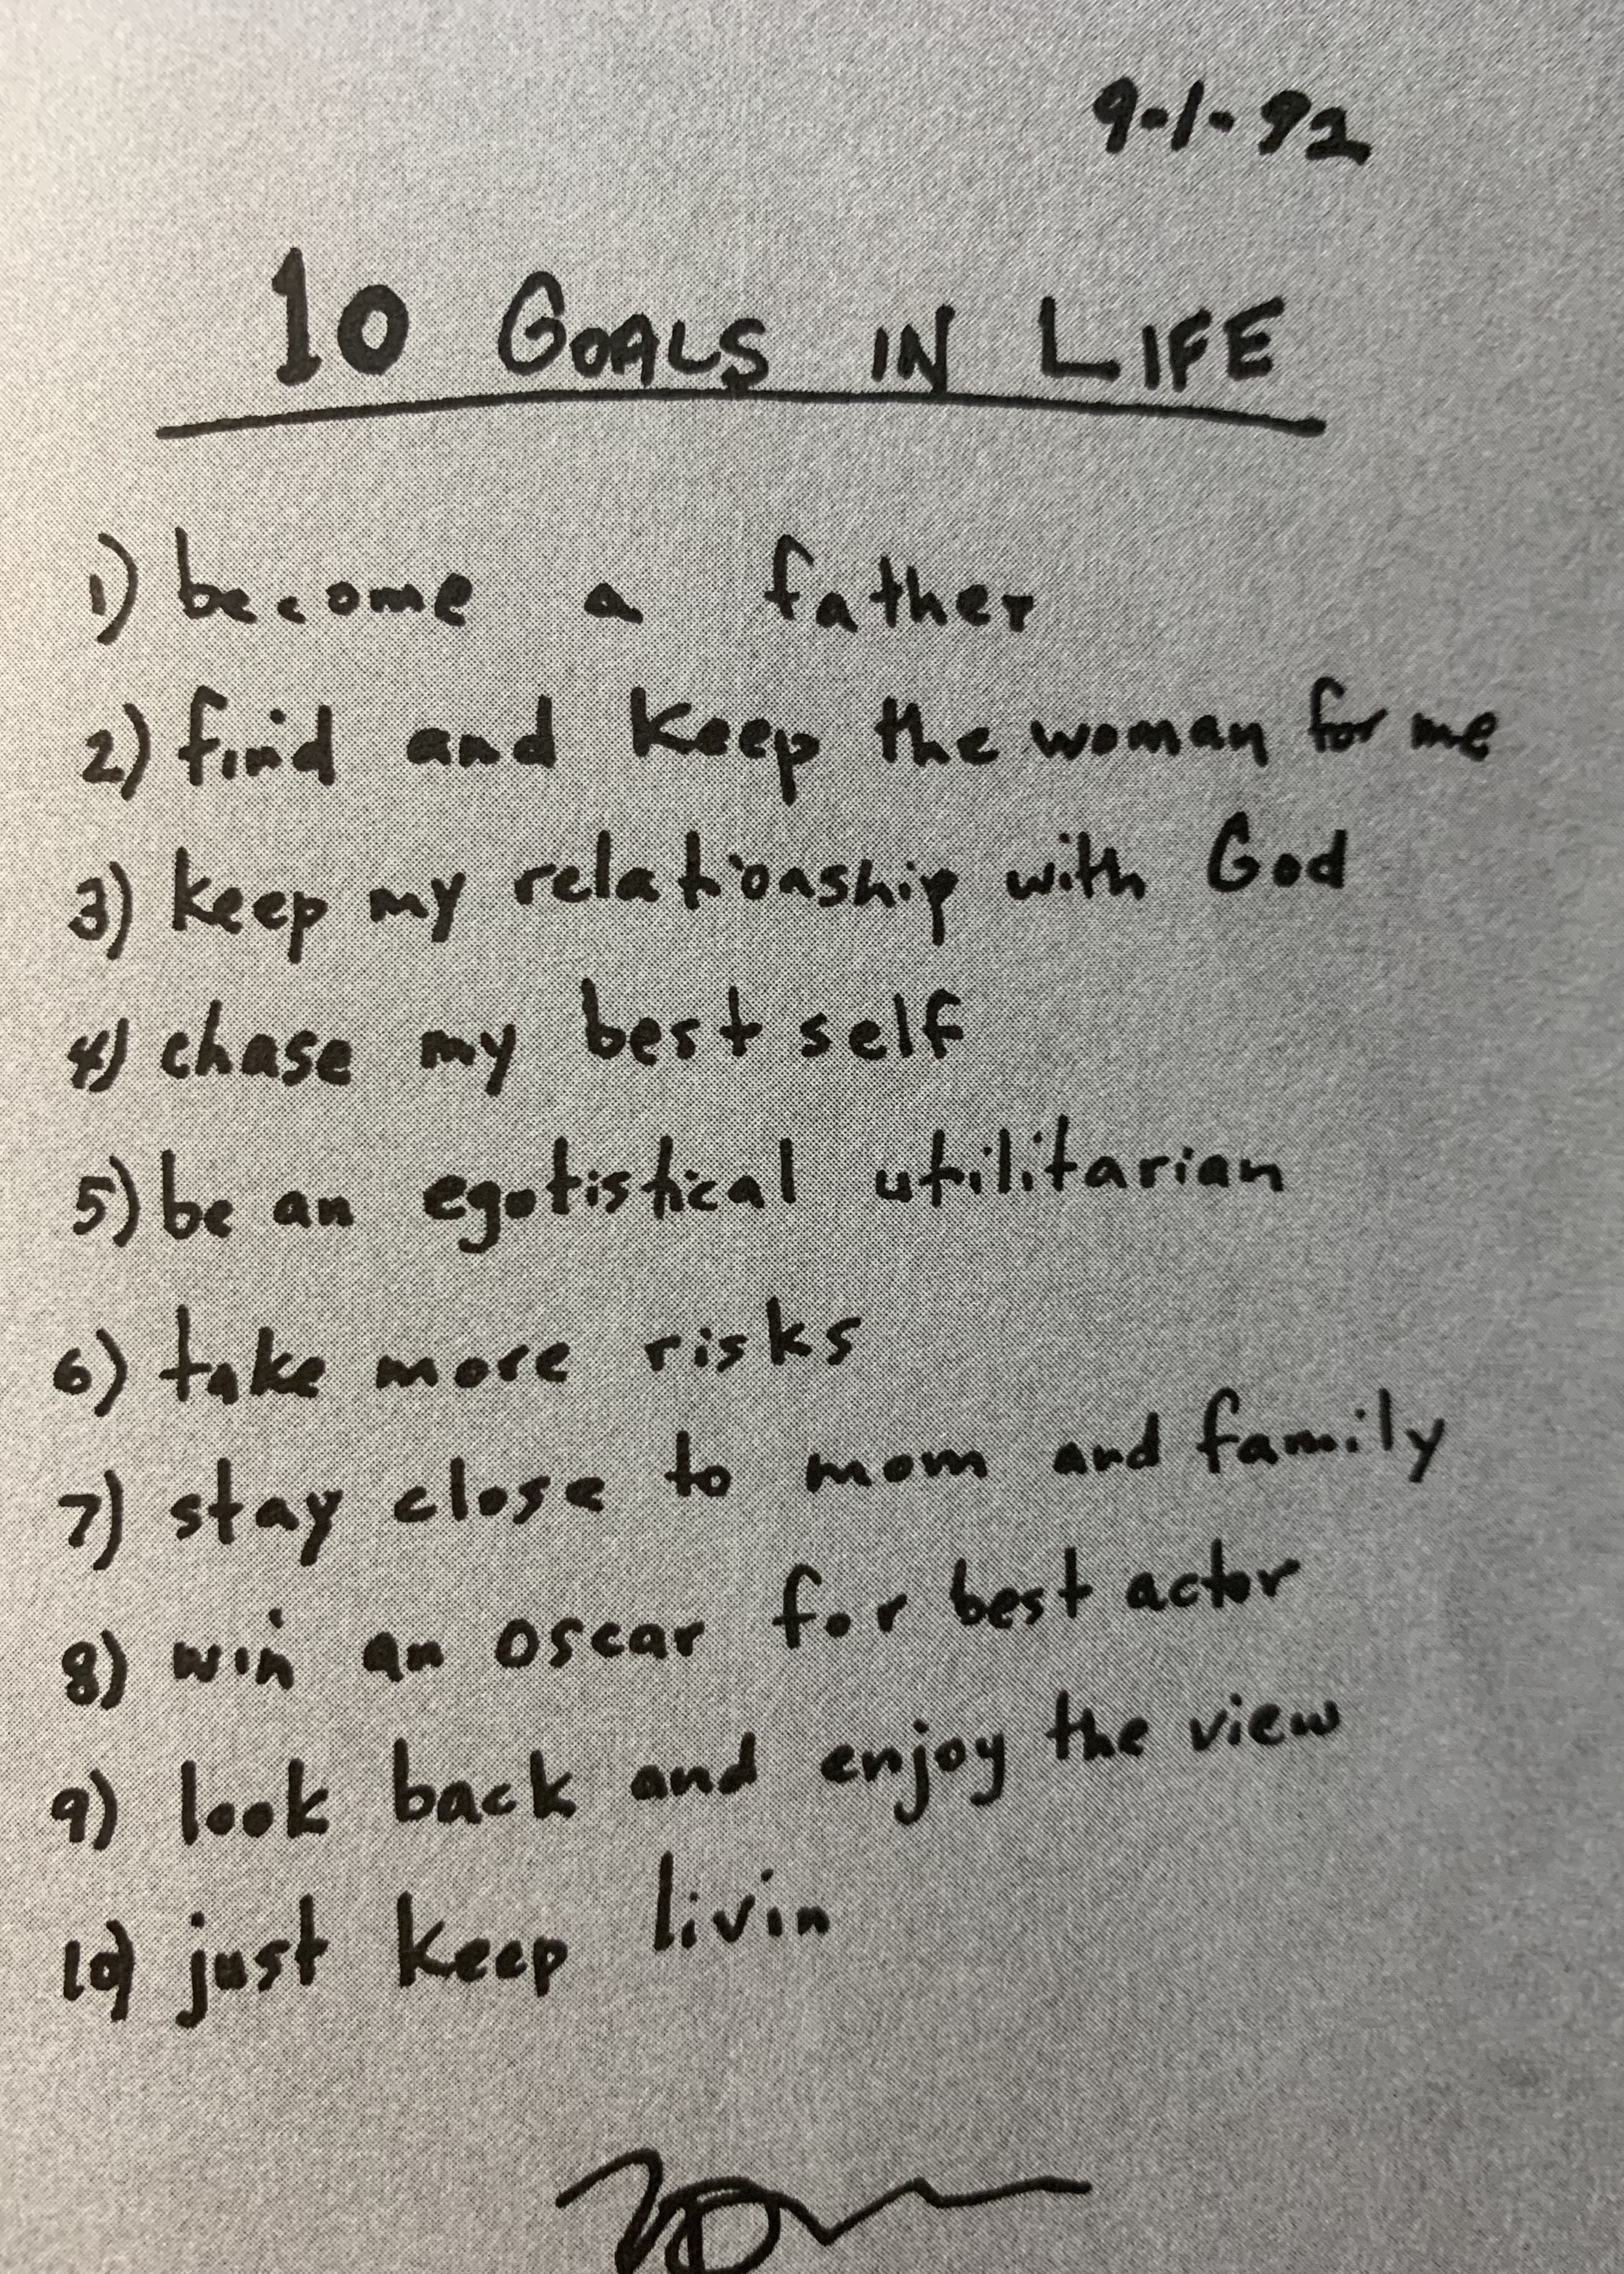 9-1-92
10 GOALS IN LIFE
1) become a father
2) find and keep the woman for me
3) keep my relationship with God
4) chase my best self
5) be an egotistical utilitarian
6) take more risks
7) stay close to mom and family
8) win an oscar for best actor
9) look back and enjoy the view
10) just keep livin